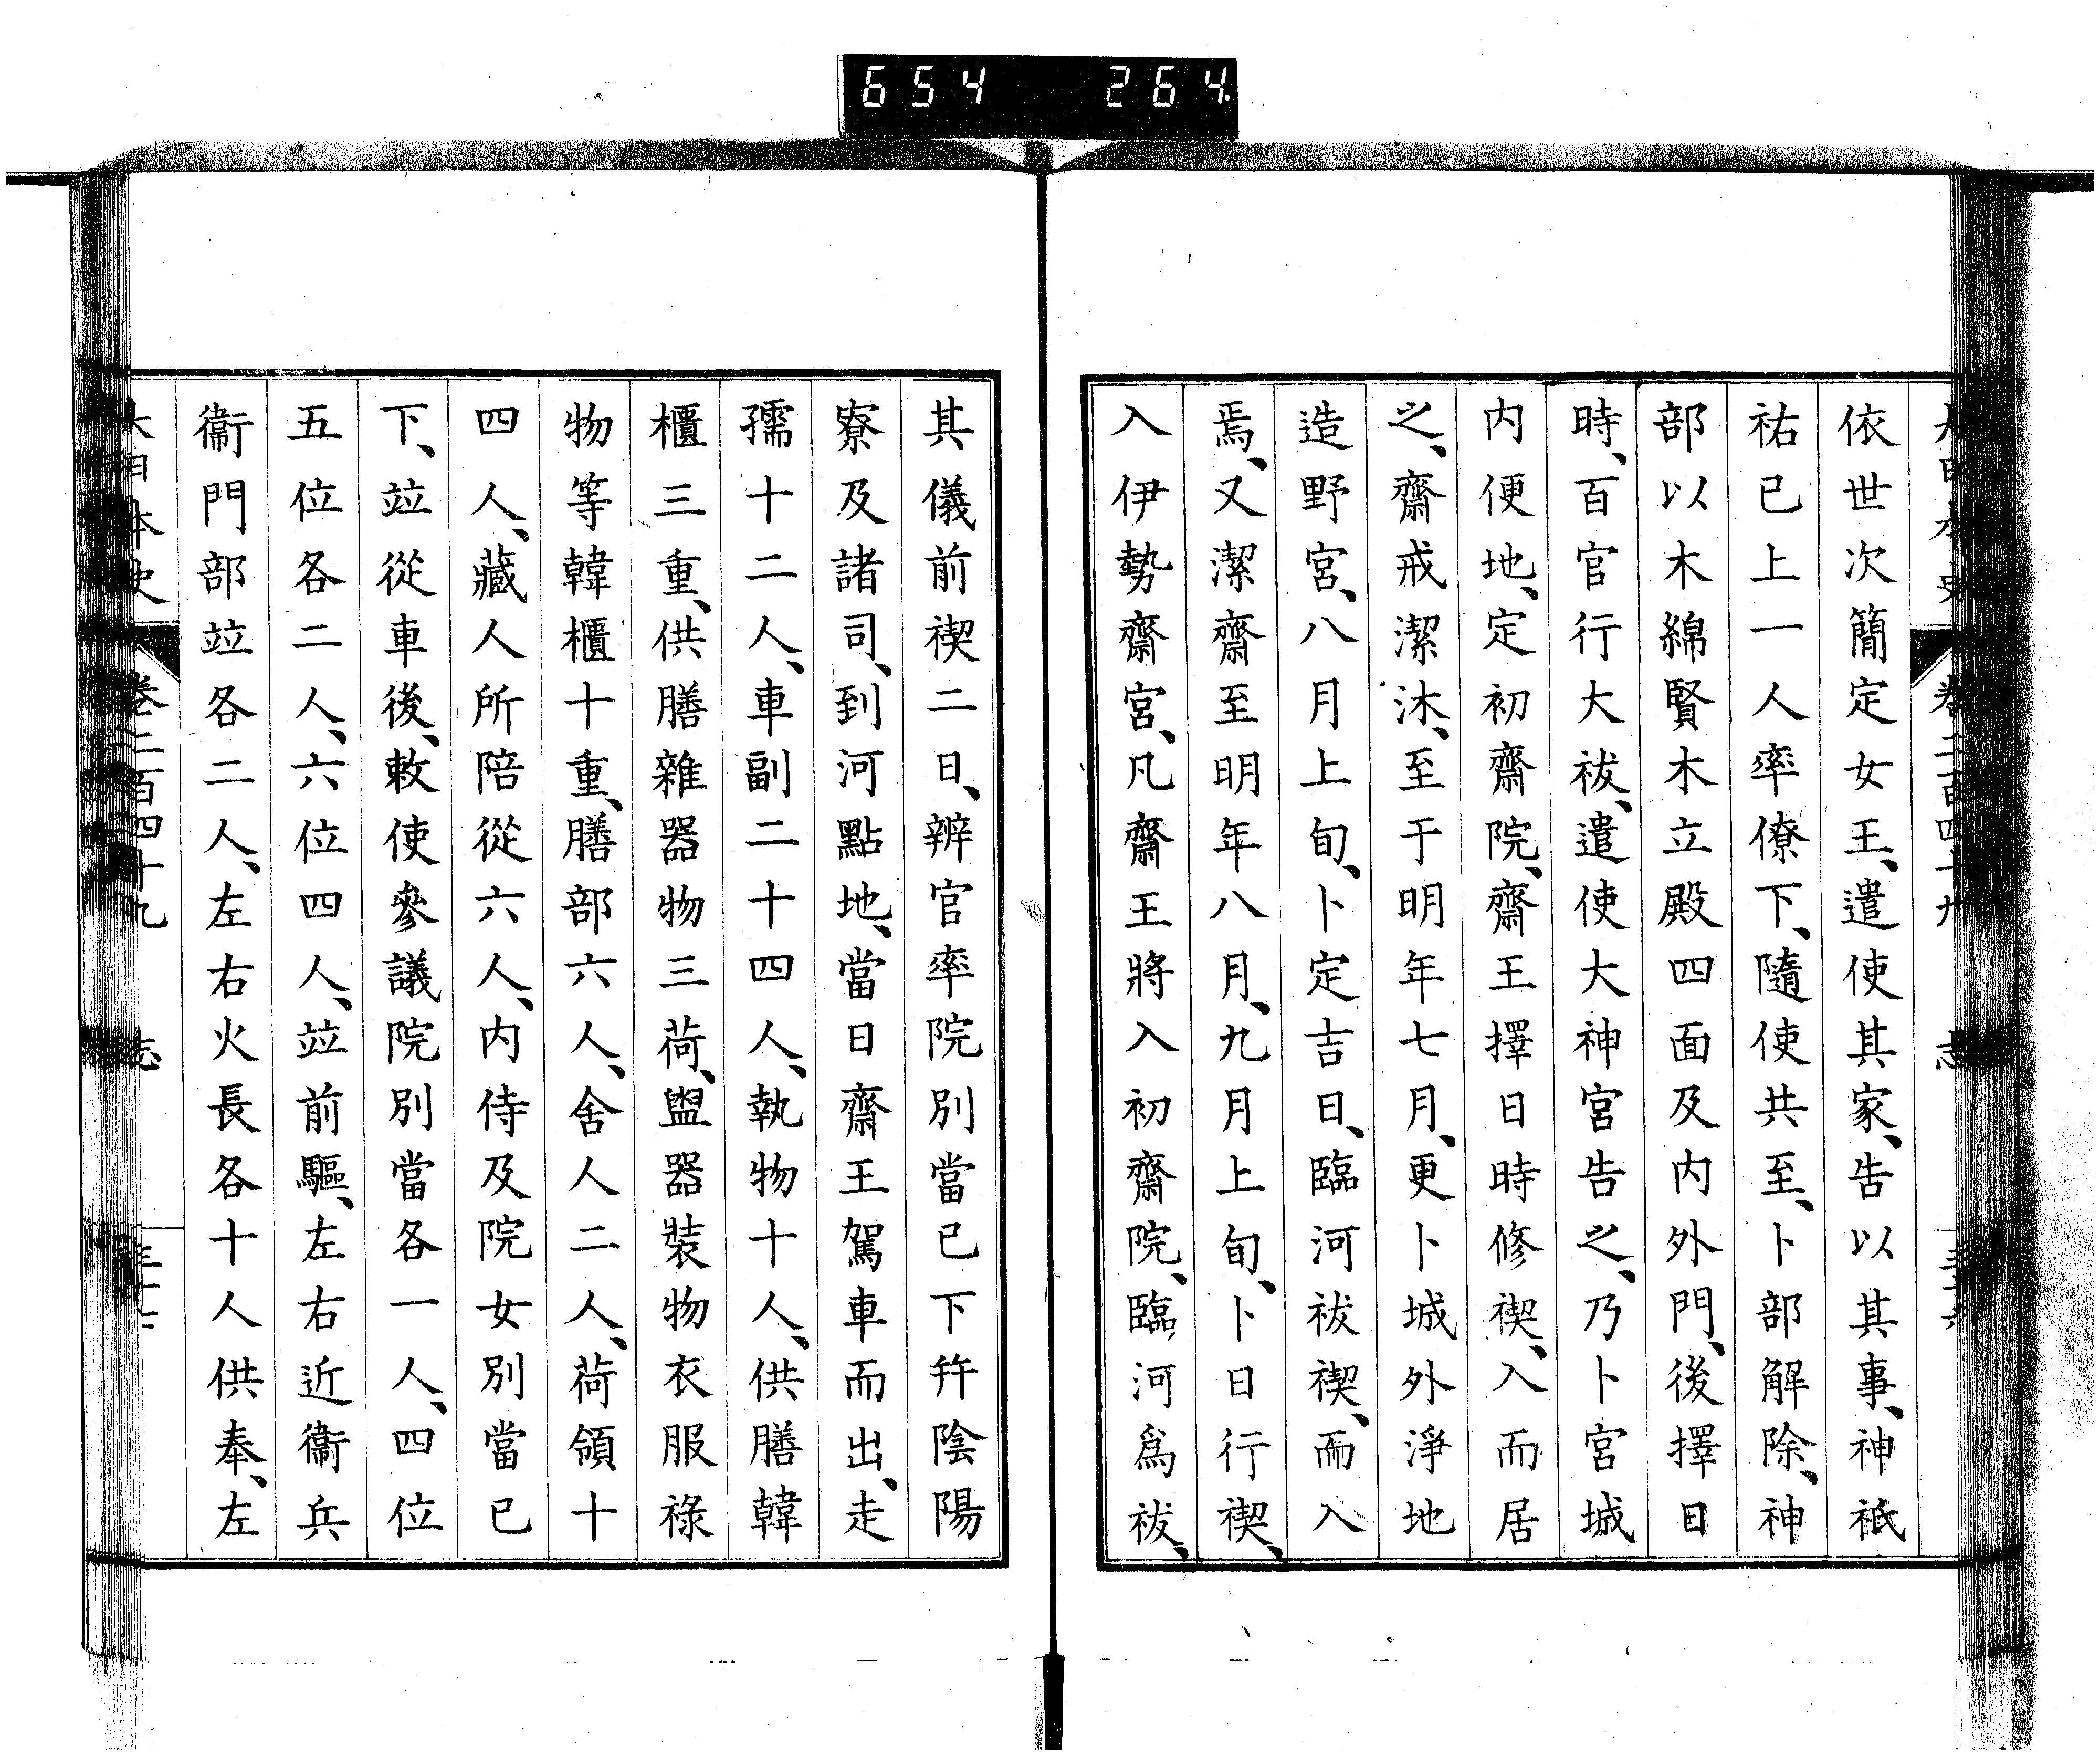 654 264
大日本史 卷二百四十九 志 三十六
依世次簡定女王、遣使其家、告以其事、神祇
祐已上一人率僚下、隨使共至、卜部解除、神
部以木綿賢木立殿四面及内外門、後擇日
時、百官行大祓、遣使大神宮告之、乃卜宮城
内便地、定初齋院、齋王擇日時修禊、入而居
之、齋戒潔沐、至于明年七月、更卜城外淨地
造野宮、八月上旬、卜定吉日、臨河祓禊、而入
焉、又潔齋至明年八月、九月上旬、卜日行禊、
入伊勢齋宮、凡齋王將入初齋院、臨河爲祓、
其儀前禊二日、辨官率院別當已下幷陰陽
寮及諸司、到河點地、當日齋王駕車而出、走
孺十二人、車副二十四人、執物十人、供膳韓
櫃三重、供膳雜器物三荷、盥器裝物衣服祿
物等韓櫃十重、膳部六人、舍人二人、荷領十
四人、藏人所陪從六人、内侍及院女別當已
下、竝從車後、敕使參議院別當各一人、四位
五位各二人、六位四人、竝前驅、左右近衞兵
衞門部竝各二人、左右火長各十人供奉、左
大日本史 卷二百四十九 志 三十七